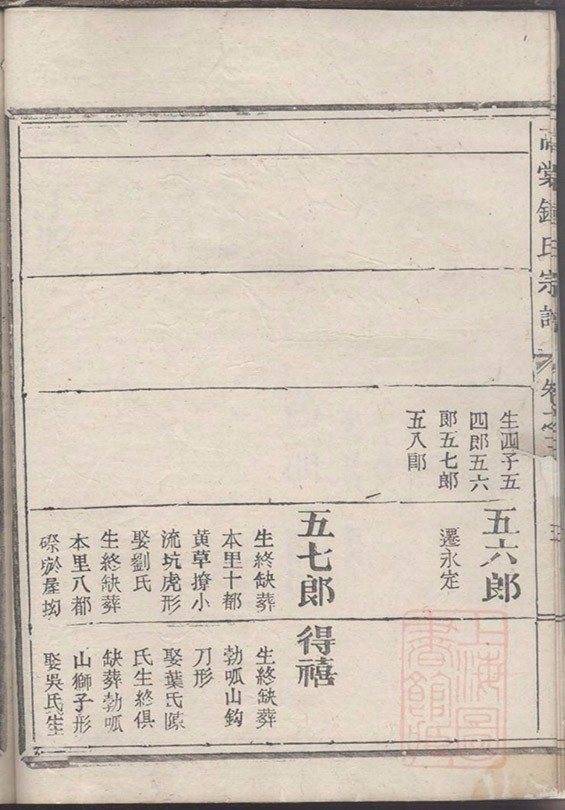 棠鍾氏宗譜
卷
生四子五
四郎五六
郎五七郎
五八郎
五六郎
遷永定
五七郎
生終缺葬
本里十都
黄草撩小
流坑虎形
娶劉氏
生終缺葬
本里八都
得禧
生終缺葬
勃呱山鈎
刀形
娶葉氏陳
氏生終俱
缺葬勃呱
山獅子形
娶吳氏生
上海圖
書館藏